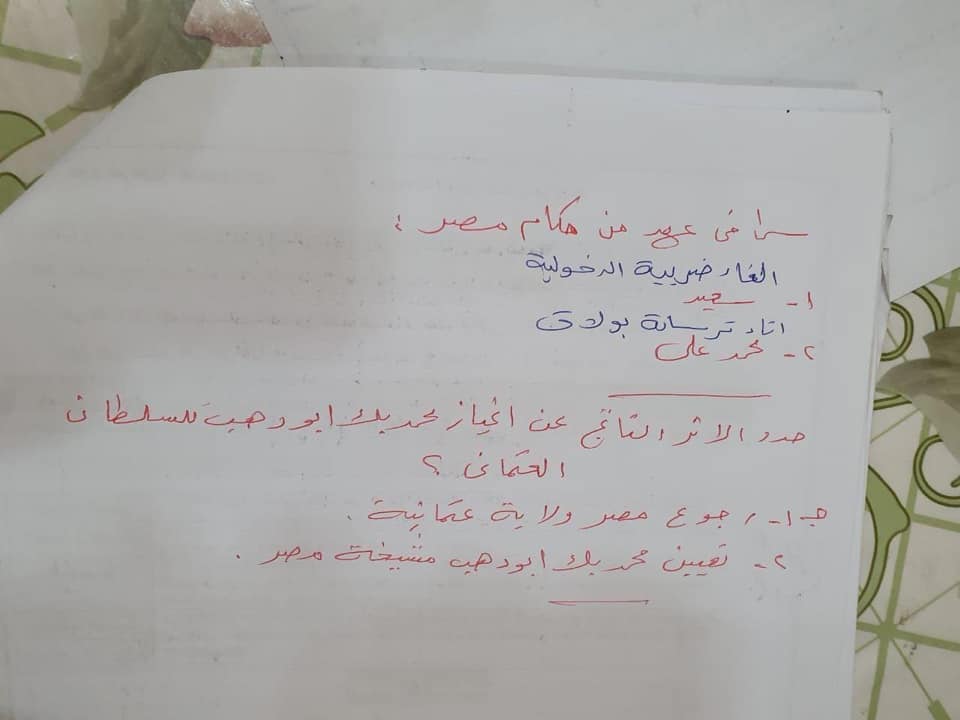 في عهد من حكام مصر :
الغاء ضريبة الدخولية
١- سعيد
ترسانة بولاق
٢- محمد على
حدد الاثر الناتج عن انحياز محمد بك ابو دهب للسلطان
العثمانى ؟
جـ١- رجوع مصر ولاية عثمانية .
٢- تعيين محمد بك ابو دهب مشيخة مصر .